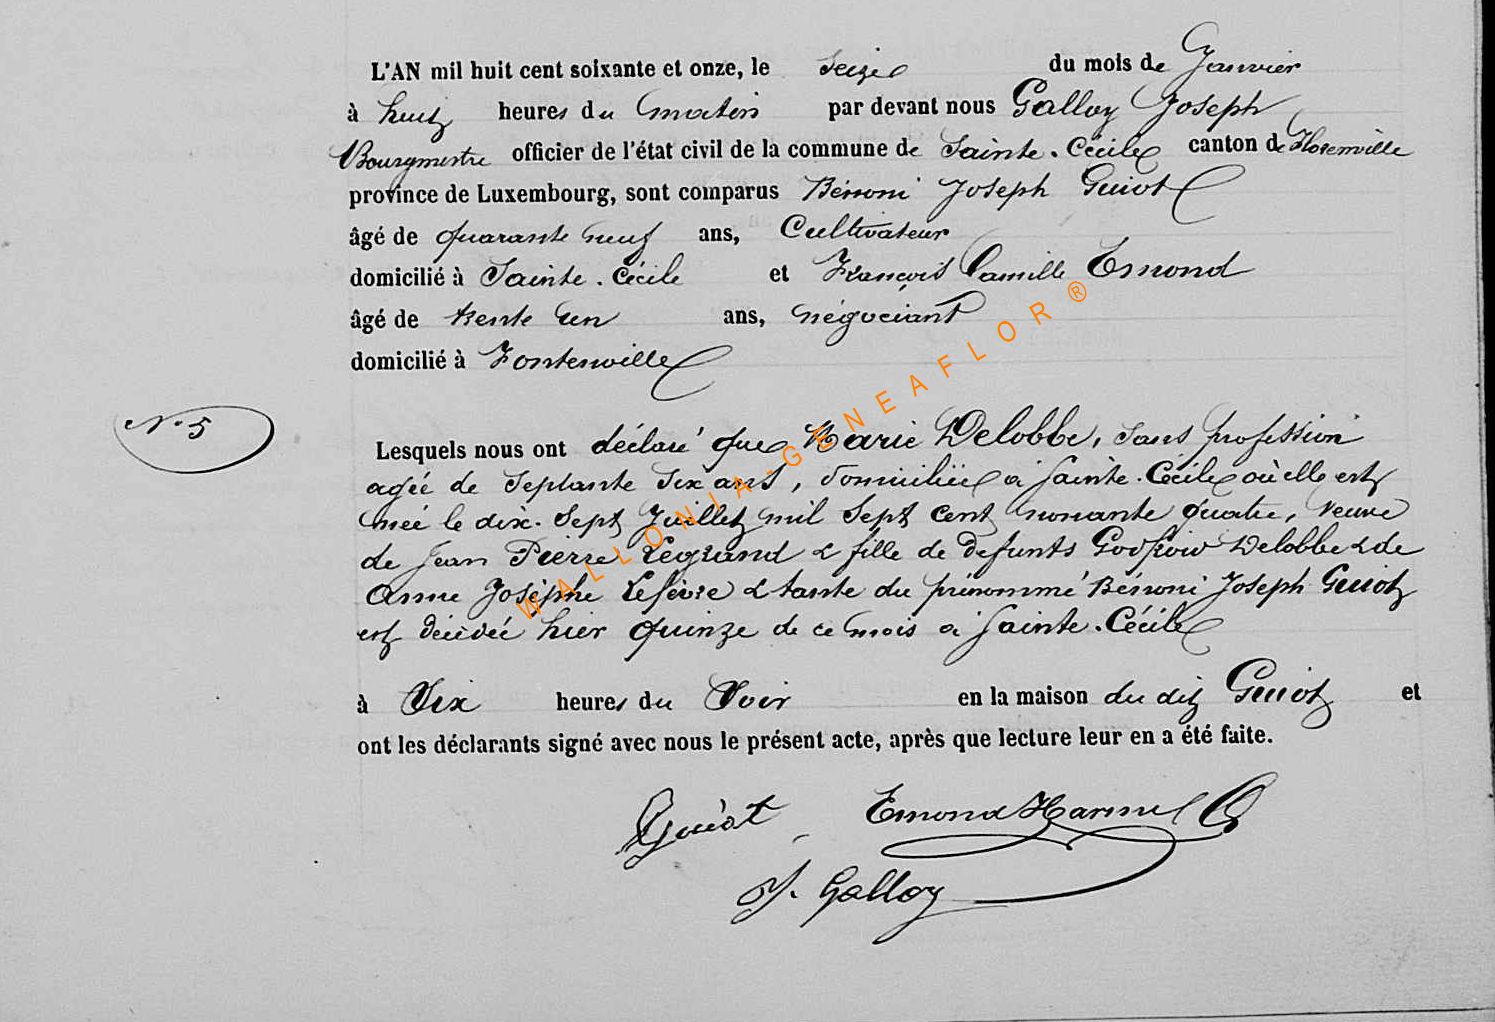 L'AN mil huit cent soixante et onze, le Seize du mois de Janvier
à huit heures du matin par devant nous Galloy Joseph
Bourgmestre officier de l'état civil de la commune de Sainte-Cécile canton de Florenville
province de Luxembourg, sont comparus Bénoni Joseph Guiot
âgé de quarante neuf ans, Cultivateur
domicilié à Sainte-Cécile et François Camille Emond
âgé de trente un ans, négociant
domicilié à Fontenoille
N° 5
Lesquels nous ont déclaré que Marie Delobbe, sans profession
agée de Septante Six ans, domiciliée à Sainte-Cécile où elle est
née le dix-sept Juillet mil sept cent nonante quatre, veuve
de Jean Pierre Legrand & fille de defunts Godfroid Delobbe & de
Anne Josèphe Lefèvre & tante du prénommé Bénoni Joseph Guiot
est décédée hier quinze de ce mois à Sainte-Cécile
à Six heures du Soir en la maison du dit Guiot et
ont les déclarants signé avec nous le présent acte, après que lecture leur en a été faite.
Guiot Emond Harmel
J. Galloy
WALLONIA-GENEAFLOR®